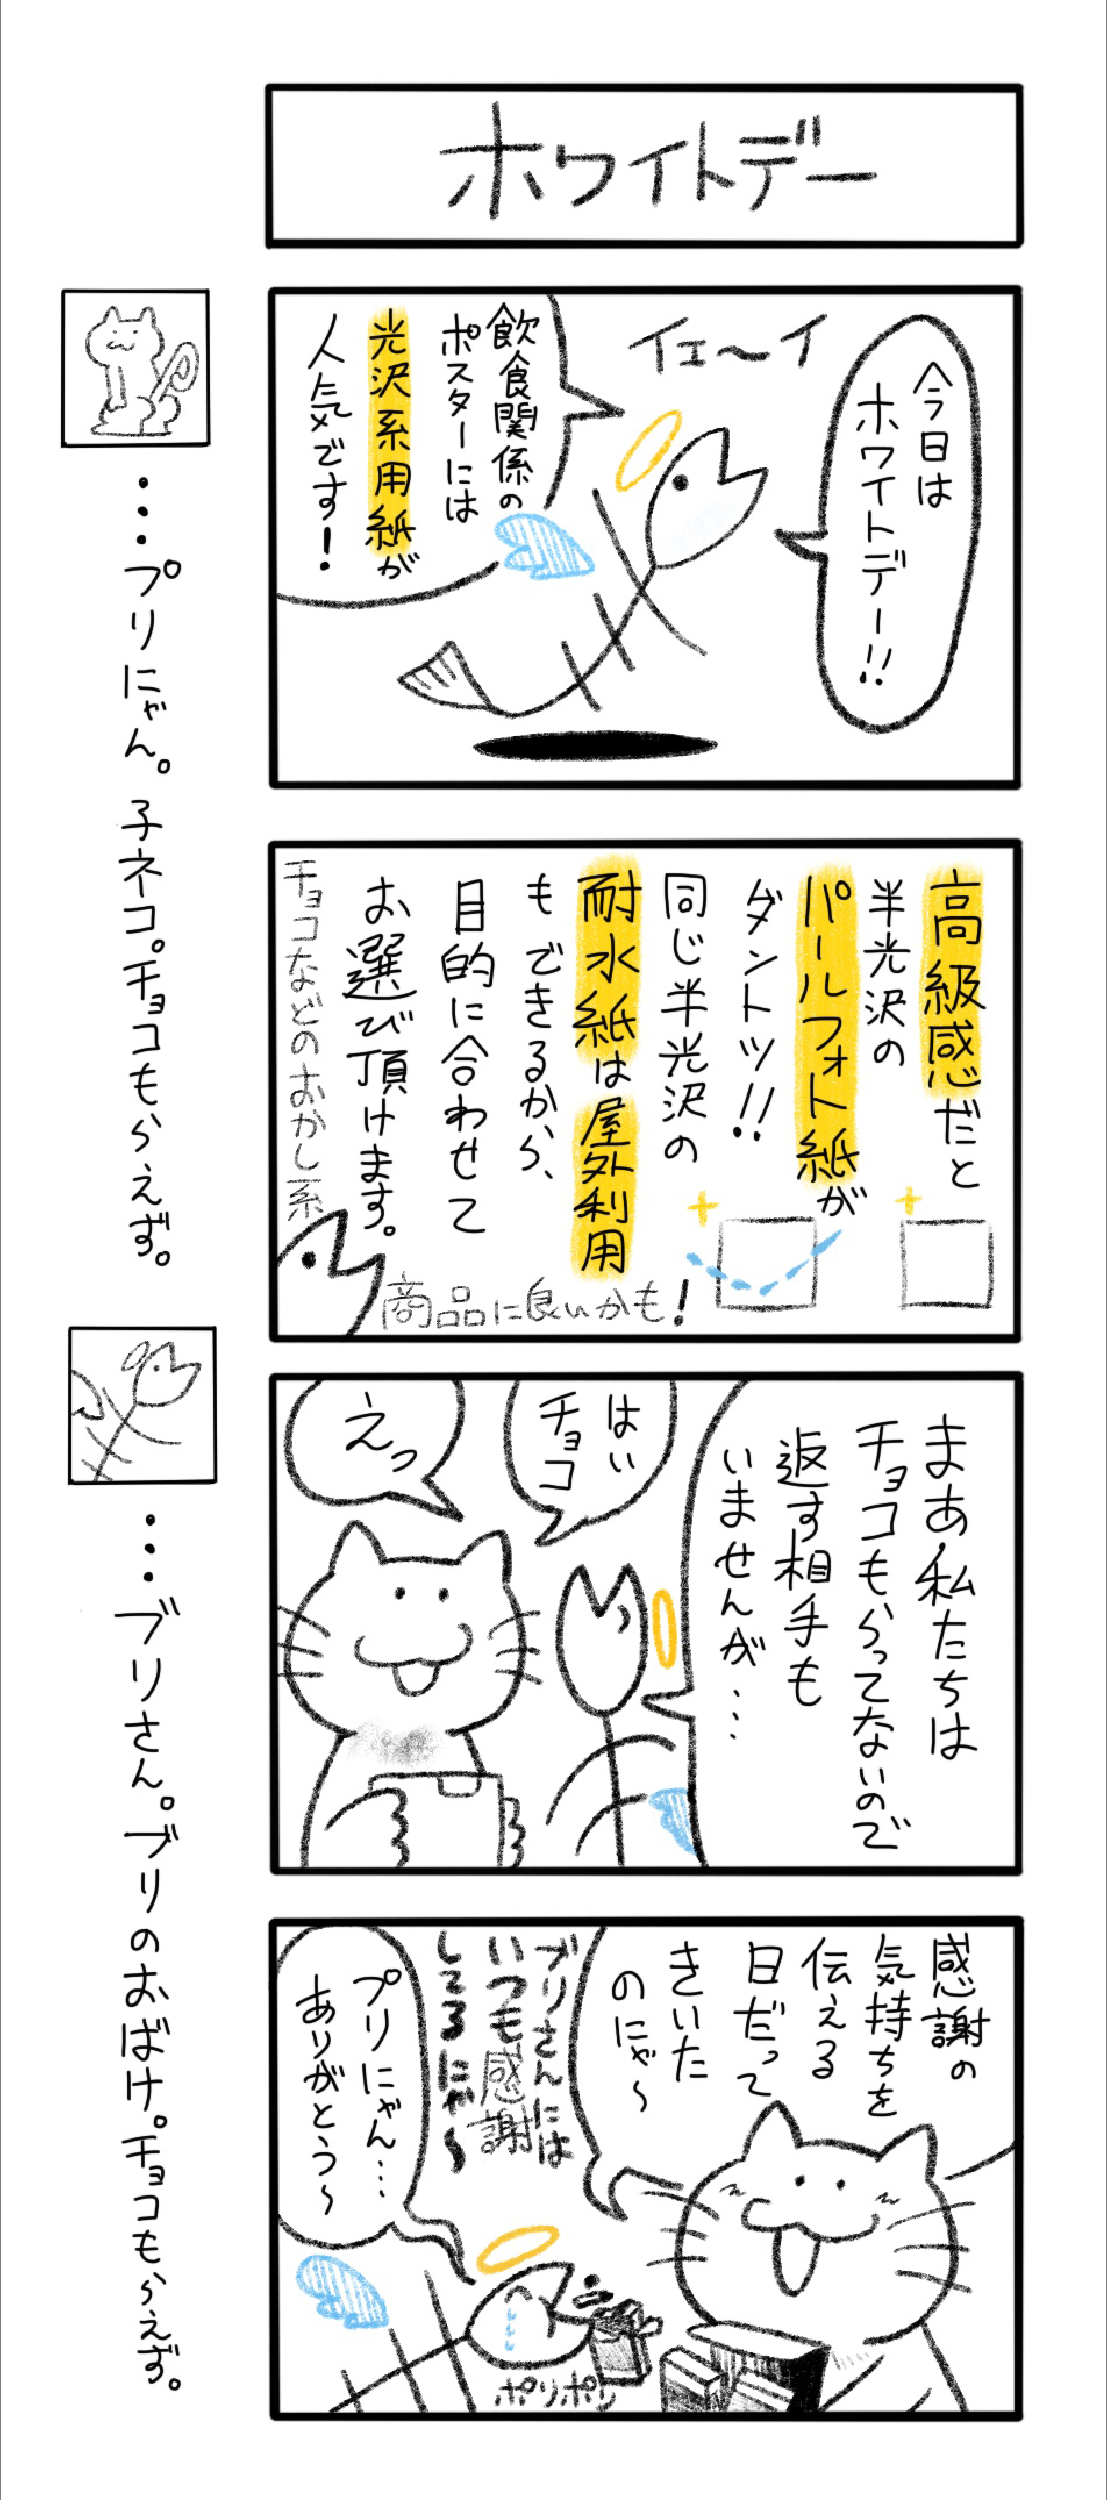 ホワイトデー
今日は
ホワイトデー!!
イェ〜イ
飲食関係の
ポスターには
光沢系用紙が
人気です!
高級感だと
半光沢の
パールフォト紙が
ダントツ!!
同じ半光沢の
耐水紙は屋外利用
もできるから、
目的に合わせて
お選び頂けます。
チョコなどのおかし系
商品に良いかも!
まあ私たちは
チョコもらってないので
返す相手も
いませんが…
はい
チョコ
えっ
感謝の
気持ちを
伝える
日だって
きいた
のにゃ〜
ブリさんには
いつも感謝
してるにゃ〜
プリにゃん…
ありがとう〜
ポリポリ
…プリにゃん。子ネコ。チョコもらえず。
…ブリさん。ブリのおばけ。チョコもらえず。